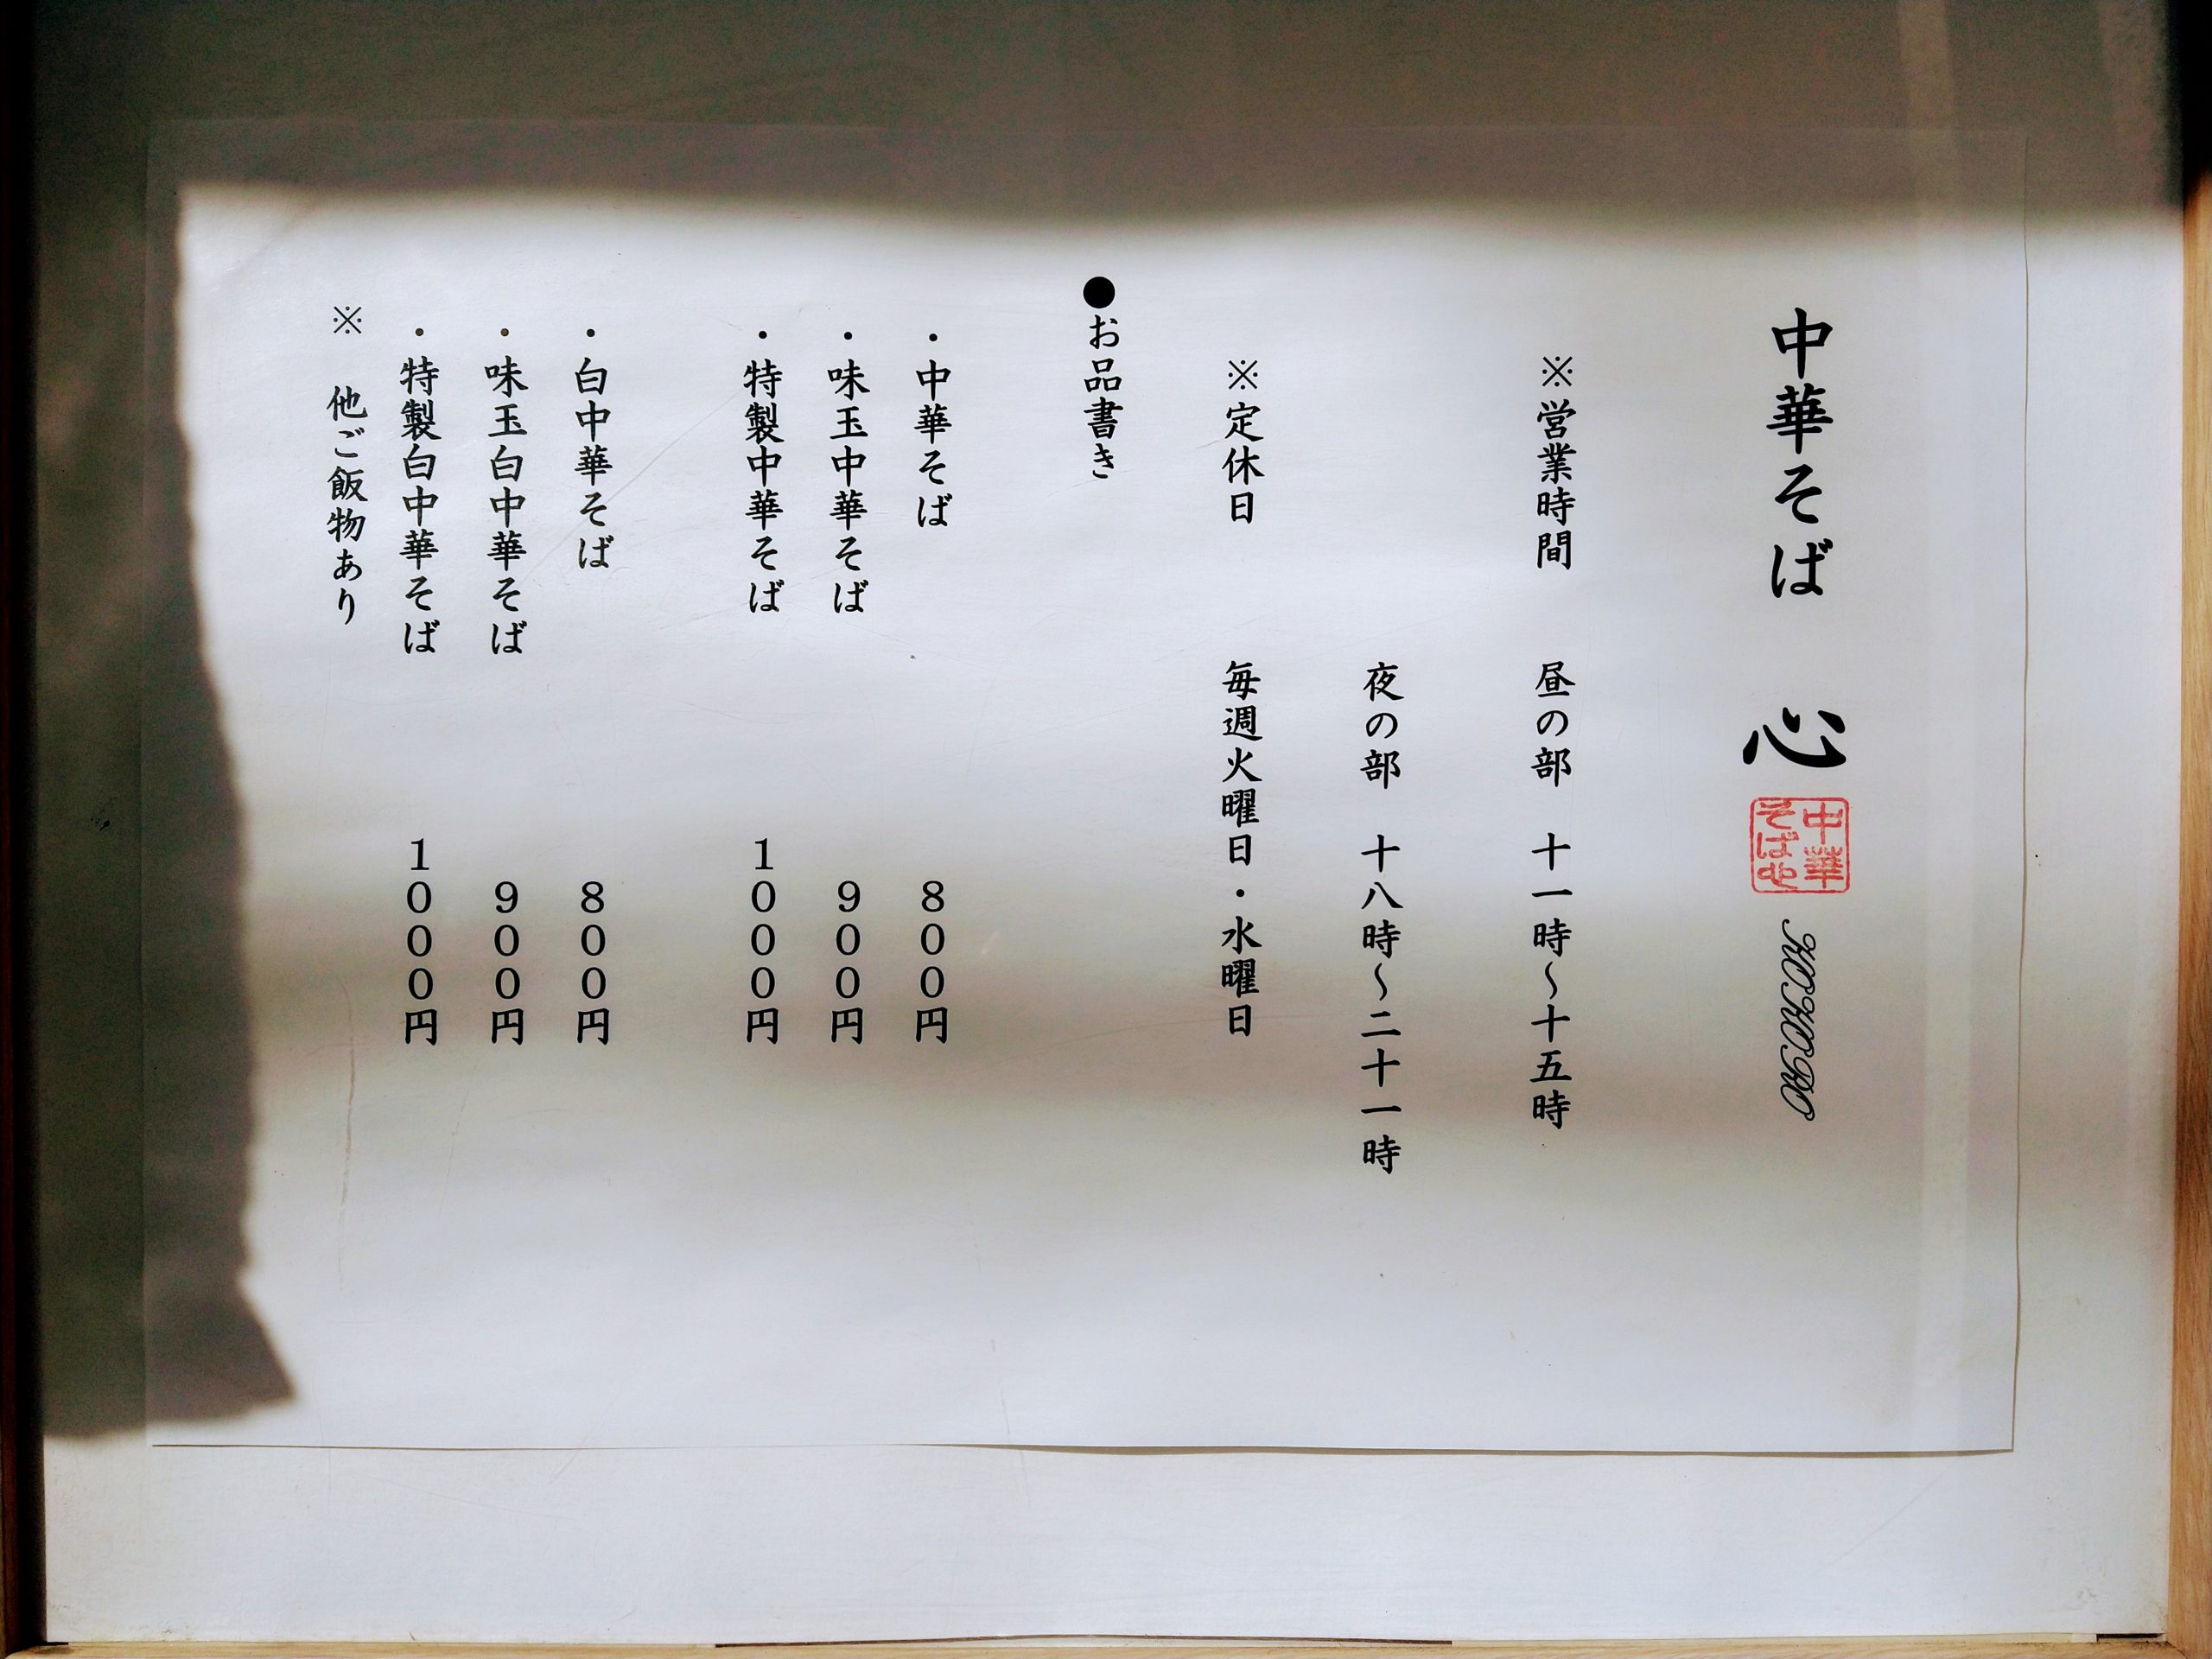 中華そば 心
中華
そば心
KOKORO
※営業時間 昼の部 十一時～十五時
夜の部 十八時～二十一時
※定休日 毎週火曜日・水曜日
●お品書き
・中華そば 800円
・味玉中華そば 900円
・特製中華そば 1000円
・白中華そば 800円
・味玉白中華そば 900円
・特製白中華そば 1000円
※ 他ご飯物あり